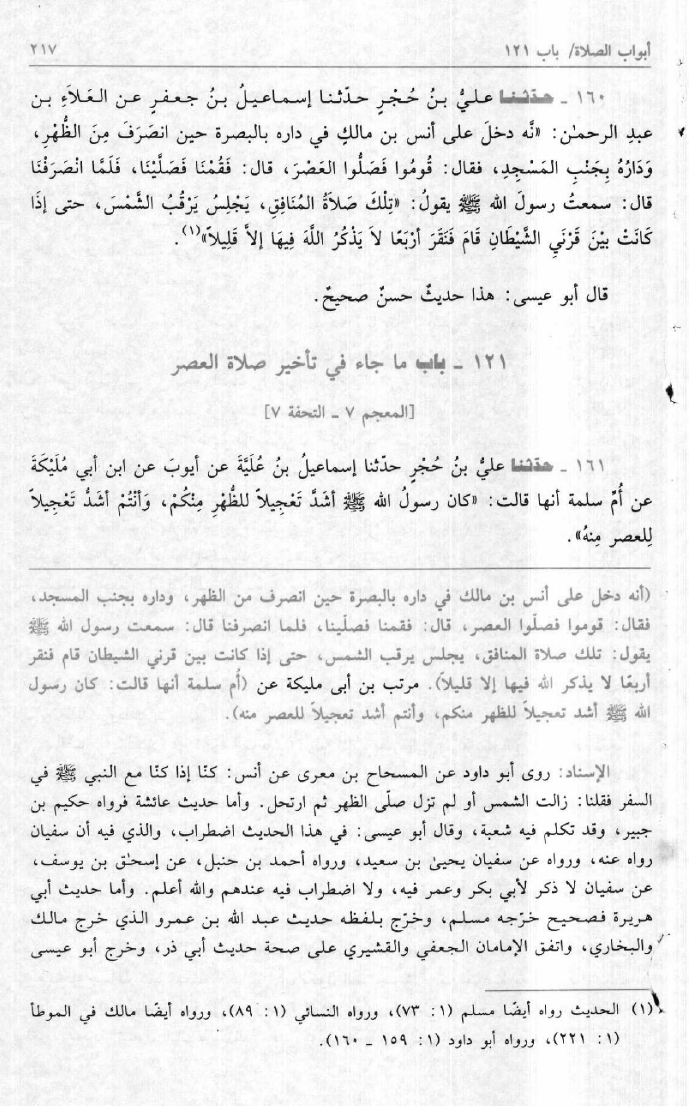 أبواب الصلاة/ باب ١٢١
٢١٧
١٦٠ ـ حدّثنا عليُّ بنُ حُجْرٍ حدّثنا إسماعيلُ بنُ جعفرٍ عن العَلَاءِ بن
عبدِ الرحمٰن: «نَّه دخلَ على أنس بن مالكٍ في داره بالبصرة حين انصَرَفَ مِنَ الظُّهْرِ،
وَدَارُهُ بِجَنْبِ المَسْجِدِ، فقال: قُومُوا فَصَلُّوا العَصْرَ، قال: فَقُمْنَا فَصَلَّيْنَا، فَلَمَّا انْصَرَفْنَا
قال: سمعتُ رسولَ الله ﷺ يقولُ: «تِلْكَ صَلَاةُ المُنَافِقِ، يَجْلِسُ يَرْقُبُ الشَّمْسَ، حتى إذَا
كَانَتْ بَيْنَ قَرْنَيِ الشَّيْطَانِ قَامَ فَنَقَرَ أرْبَعًا لاَ يَذْكُرُ اللَّهَ فِيهَا إلاَّ قَلِيلاً»(١).
قال أبو عيسى: هذا حديثٌ حسنٌ صحيحٌ.
١٢١ ـ باب ما جاء في تأخير صلاة العصر
[المعجم ٧ ـ التحفة ٧]
١٦١ ـ حدّثنا عليُّ بنُ حُجْرٍ حدّثنا إسماعيلُ بنُ عُلَيَّةَ عن أيوبَ عن ابن أبي مُلَيْكَةَ
عن أُمِّ سلمة أنها قالت: «كان رسولُ الله ﷺ أشدَّ تَعْجِيلاً للظُّهْرِ مِنْكُمْ، وَأنْتُمْ أشَدُّ تَعْجِيلاً
لِلعصر مِنهُ».
(أنه دخل على أنس بن مالك في داره بالبصرة حين انصرف من الظهر، وداره بجنب المسجد،
فقال: قوموا فصلّوا العصر، قال: فقمنا فصلّينا، فلما انصرفنا قال: سمعت رسول الله ﷺ
يقول: تلك صلاة المنافق، يجلس يرقب الشمس، حتى إذا كانت بين قرني الشيطان قام فنقر
أربعًا لا يذكر الله فيها إلا قليلاً). مرتب بن أبى مليكة عن (أم سلمة أنها قالت: كان رسول
الله ﷺ أشد تعجيلاً للظهر منكم، وأنتم أشد تعجيلاً للعصر منه).
الإسناد: روى أبو داود عن المسحاح بن معرى عن أنس: كنّا إذا كنّا مع النبي ﷺ في
السفر فقلنا: زالت الشمس أو لم تزل صلّى الظهر ثم ارتحل. وأما حديث عائشة فرواه حكيم بن
جبير، وقد تكلم فيه شعبة، وقال أبو عيسى: في هذا الحديث اضطراب، والذي فيه أن سفيان
رواه عنه، ورواه عن سفيان يحيىٰ بن سعيد، ورواه أحمد بن حنبل، عن إسحٰق بن يوسف،
عن سفيان لا ذكر لأبي بكر وعمر فيه، ولا اضطراب فيه عندهم والله أعلم. وأما حديث أبي
هريرة فصحيح خرّجه مسلم، وخرّج بلفظه حديث عبد الله بن عمرو الذي خرج مالك
والبخاري، واتفق الإمامان الجعفي والقشيري على صحة حديث أبي ذر، وخرج أبو عيسى
(١) الحديث رواه أيضًا مسلم (١: ٧٣)، ورواه النسائي (١: ٨٩)، ورواه أيضًا مالك في الموطأ
(١: ٢٢١)، ورواه أبو داود (١: ١٥٩ ـ ١٦٠).